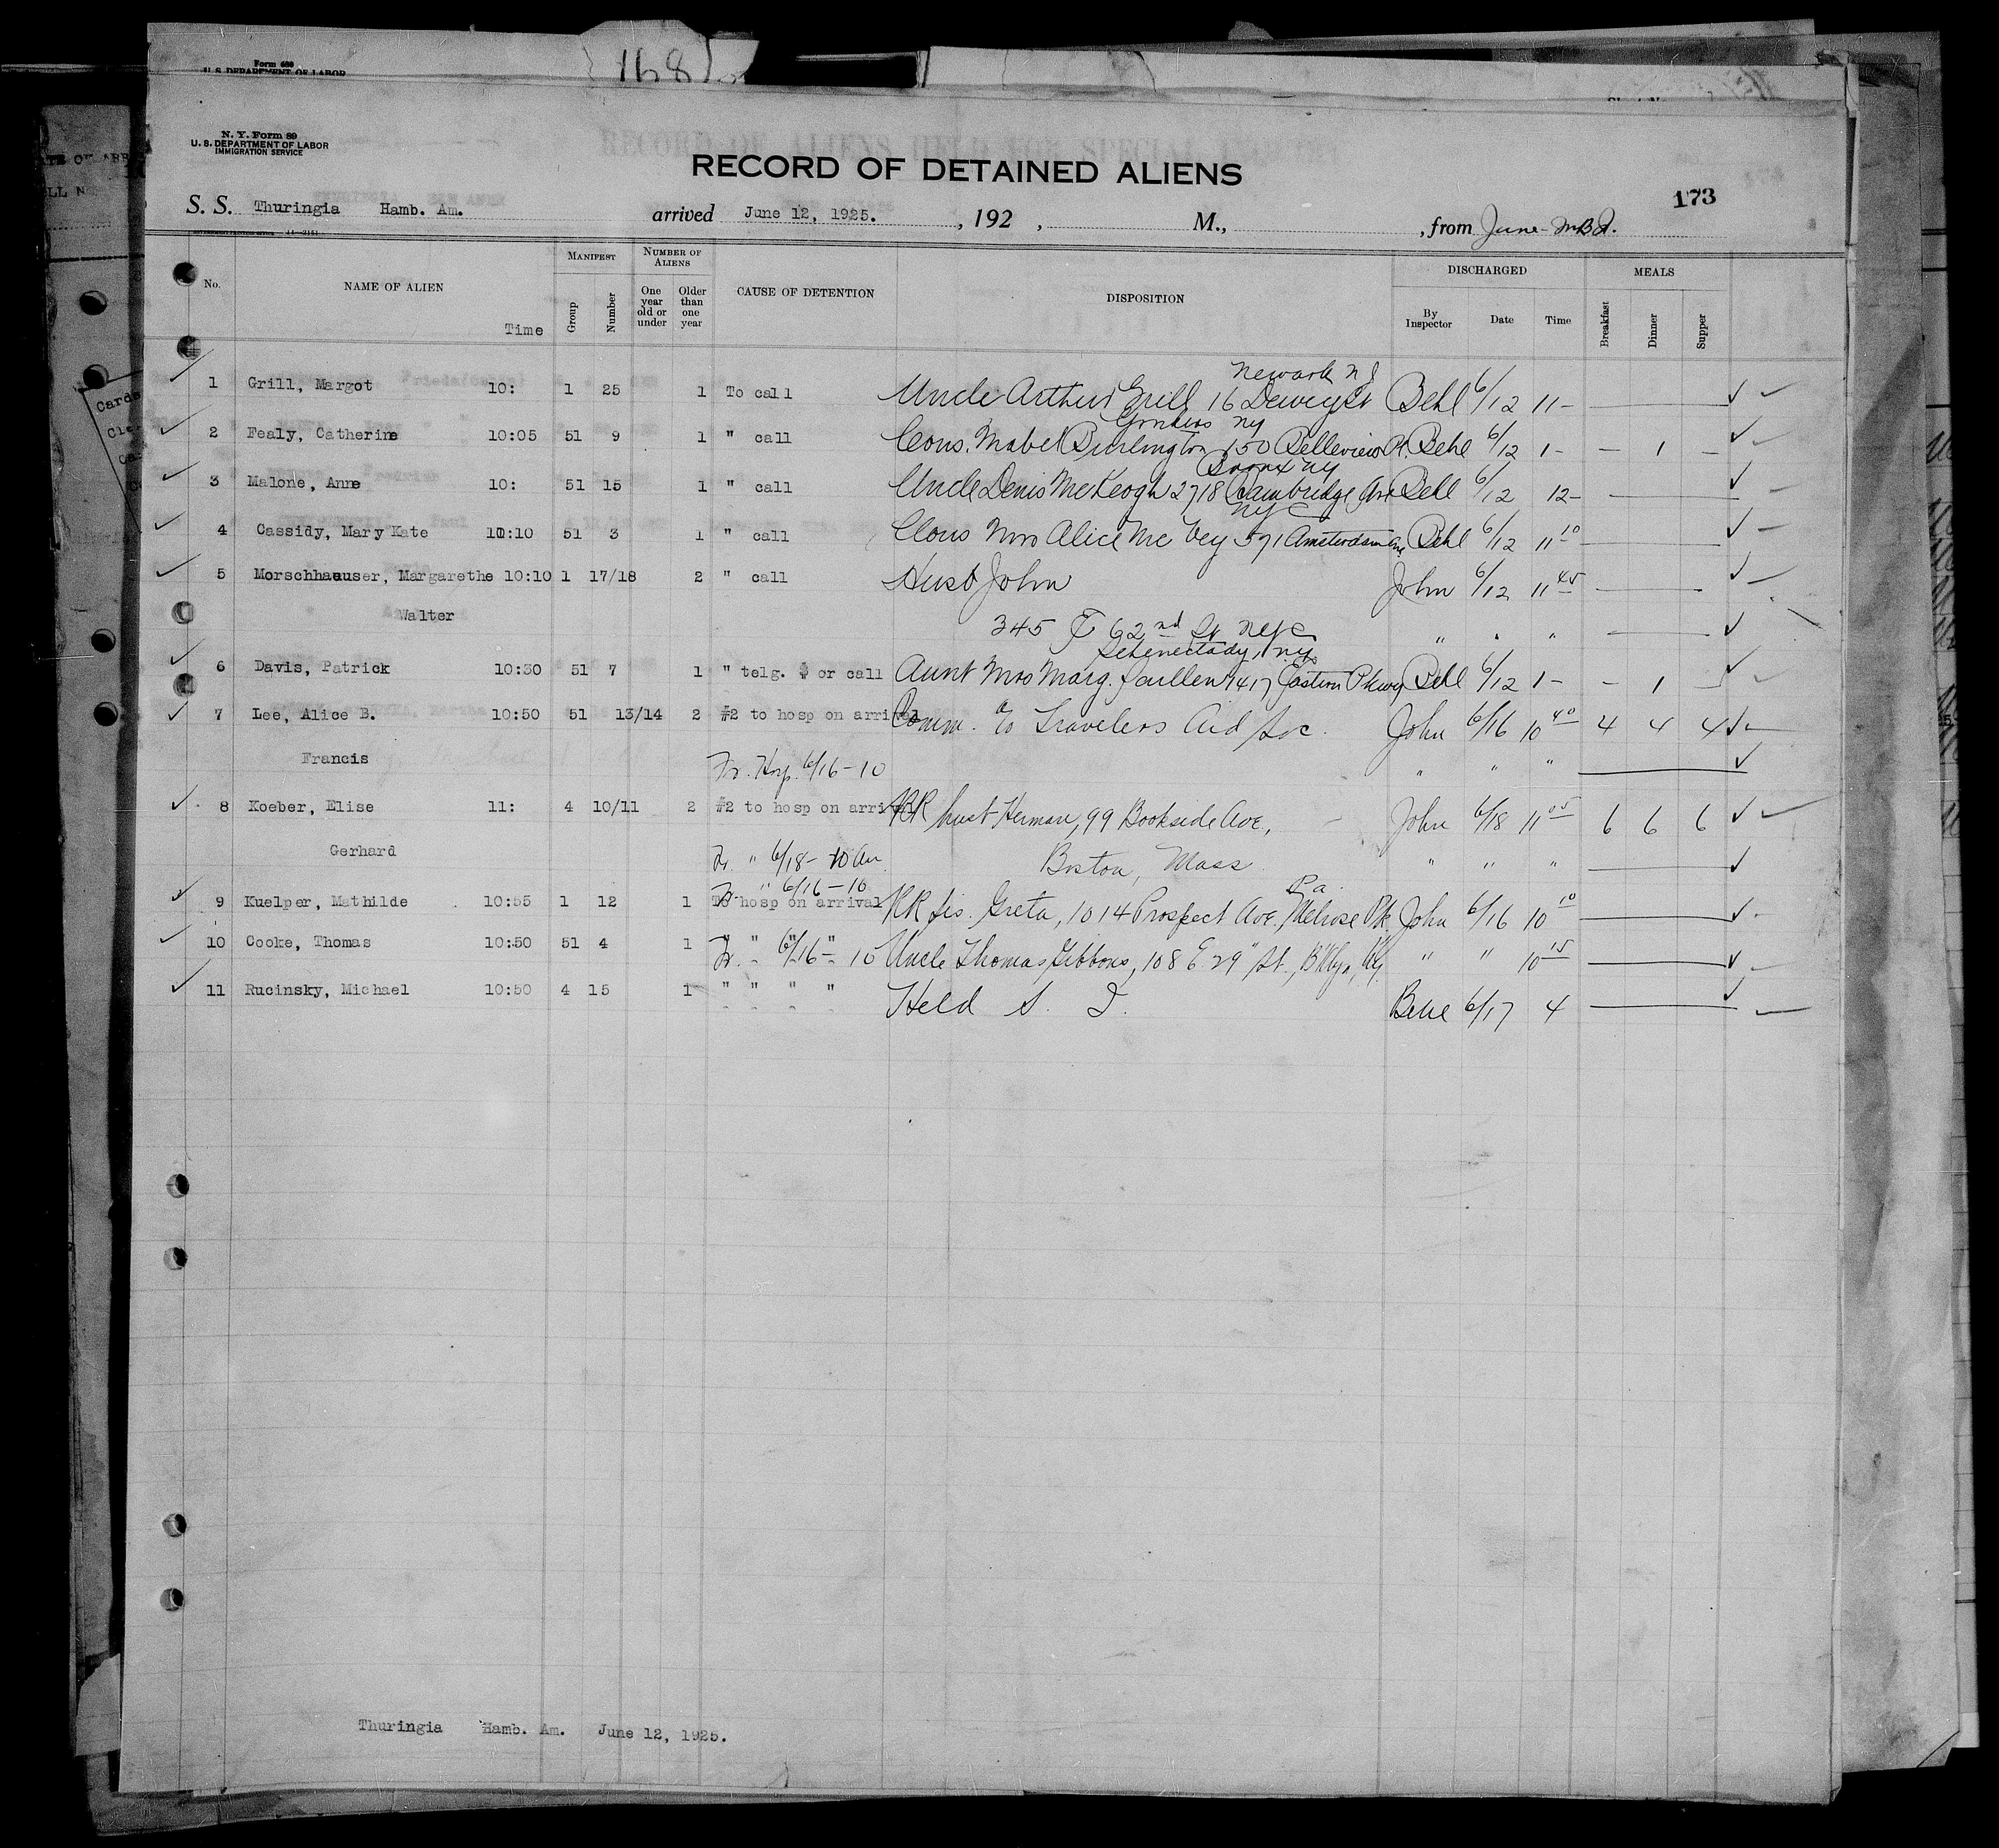 168
Form 680
U. S. DEPARTMENT OF LABOR
N. Y. Form 89
U. S. DEPARTMENT OF LABOR
IMMIGRATION SERVICE
RECORD OF DETAINED ALIENS
173
S. S. Thuringia Hamb. Am. arrived June 12, 1925. , 192 , M., , from June
No. NAME OF ALIEN Time MANIFEST Group Number NUMBER OF ALIENS One year old or under Older than one year CAUSE OF DETENTION DISPOSITION DISCHARGED By Inspector Date Time MEALS Breakfast Dinner Supper
Newark NJ
1 Grill, Margot 10: 1 25 1 To call Uncle Arthur Grill 16 Dewey St Behl 6/12 11-
Yonkers NY
2 Fealy, Catherine 10:05 51 9 1 " call Cous. Mabel Burlington 150 Belleview Pl. Behl 6/12 1- - 1 -
Bronx NY
3 Malone, Anne 10: 51 15 1 " call Uncle Denis McKeogh 2718 Cambridge Ave Behl 6/12 12-
NYC
4 Cassidy, Mary Kate 10:10 51 3 1 " call Cous Mrs Alice Mc Vey 571 Amsterdam Ave Behl 6/12 11 10
5 Morschhaeuser, Margarethe 10:10 1 17/18 2 " call Husb John John 6/12 11 45
Walter 345 E 62nd St NYC " " "
Schenectady, NY.
6 Davis, Patrick 10:30 51 7 1 " telg. $ or call Aunt Mrs Marg. 1417 Eastern Pkwy Behl 6/12 1- - 1 -
7 Lee, Alice B. 10:50 51 13/14 2 #2 to hosp on arrival Comm. c/o Travelers Aid Soc. John 6/16 10 40 4 4 4
Francis Fr. Hosp. 6/16-10 " " "
8 Koeber, Elise 11: 4 10/11 2 #2 to hosp on arrival RR husb Herman, 99 Bookside Ave, John 6/18 11 05 6 6 6
Gerhard Fr. " 6/18-10 AM Boston, Mass. " " "
Fr. " 6/16-10 Pa.
9 Kuelper, Mathilde 10:55 1 12 1 To hosp on arrival RR sis. Greta, 1014 Prospect Ave. Melrose Pk. John 6/16 10 10
10 Cooke, Thomas 10:50 51 4 1 " " " " Fr. " 6/16-10 Uncle Thomas Gibbons, 108 E 29" St., B'klyn, NY. " " 10 15
11 Rucinsky, Michael 10:50 4 15 1 " " " " Held S. I. Behl 6/17 4
Thuringia Hamb. Am. June 12, 1925.